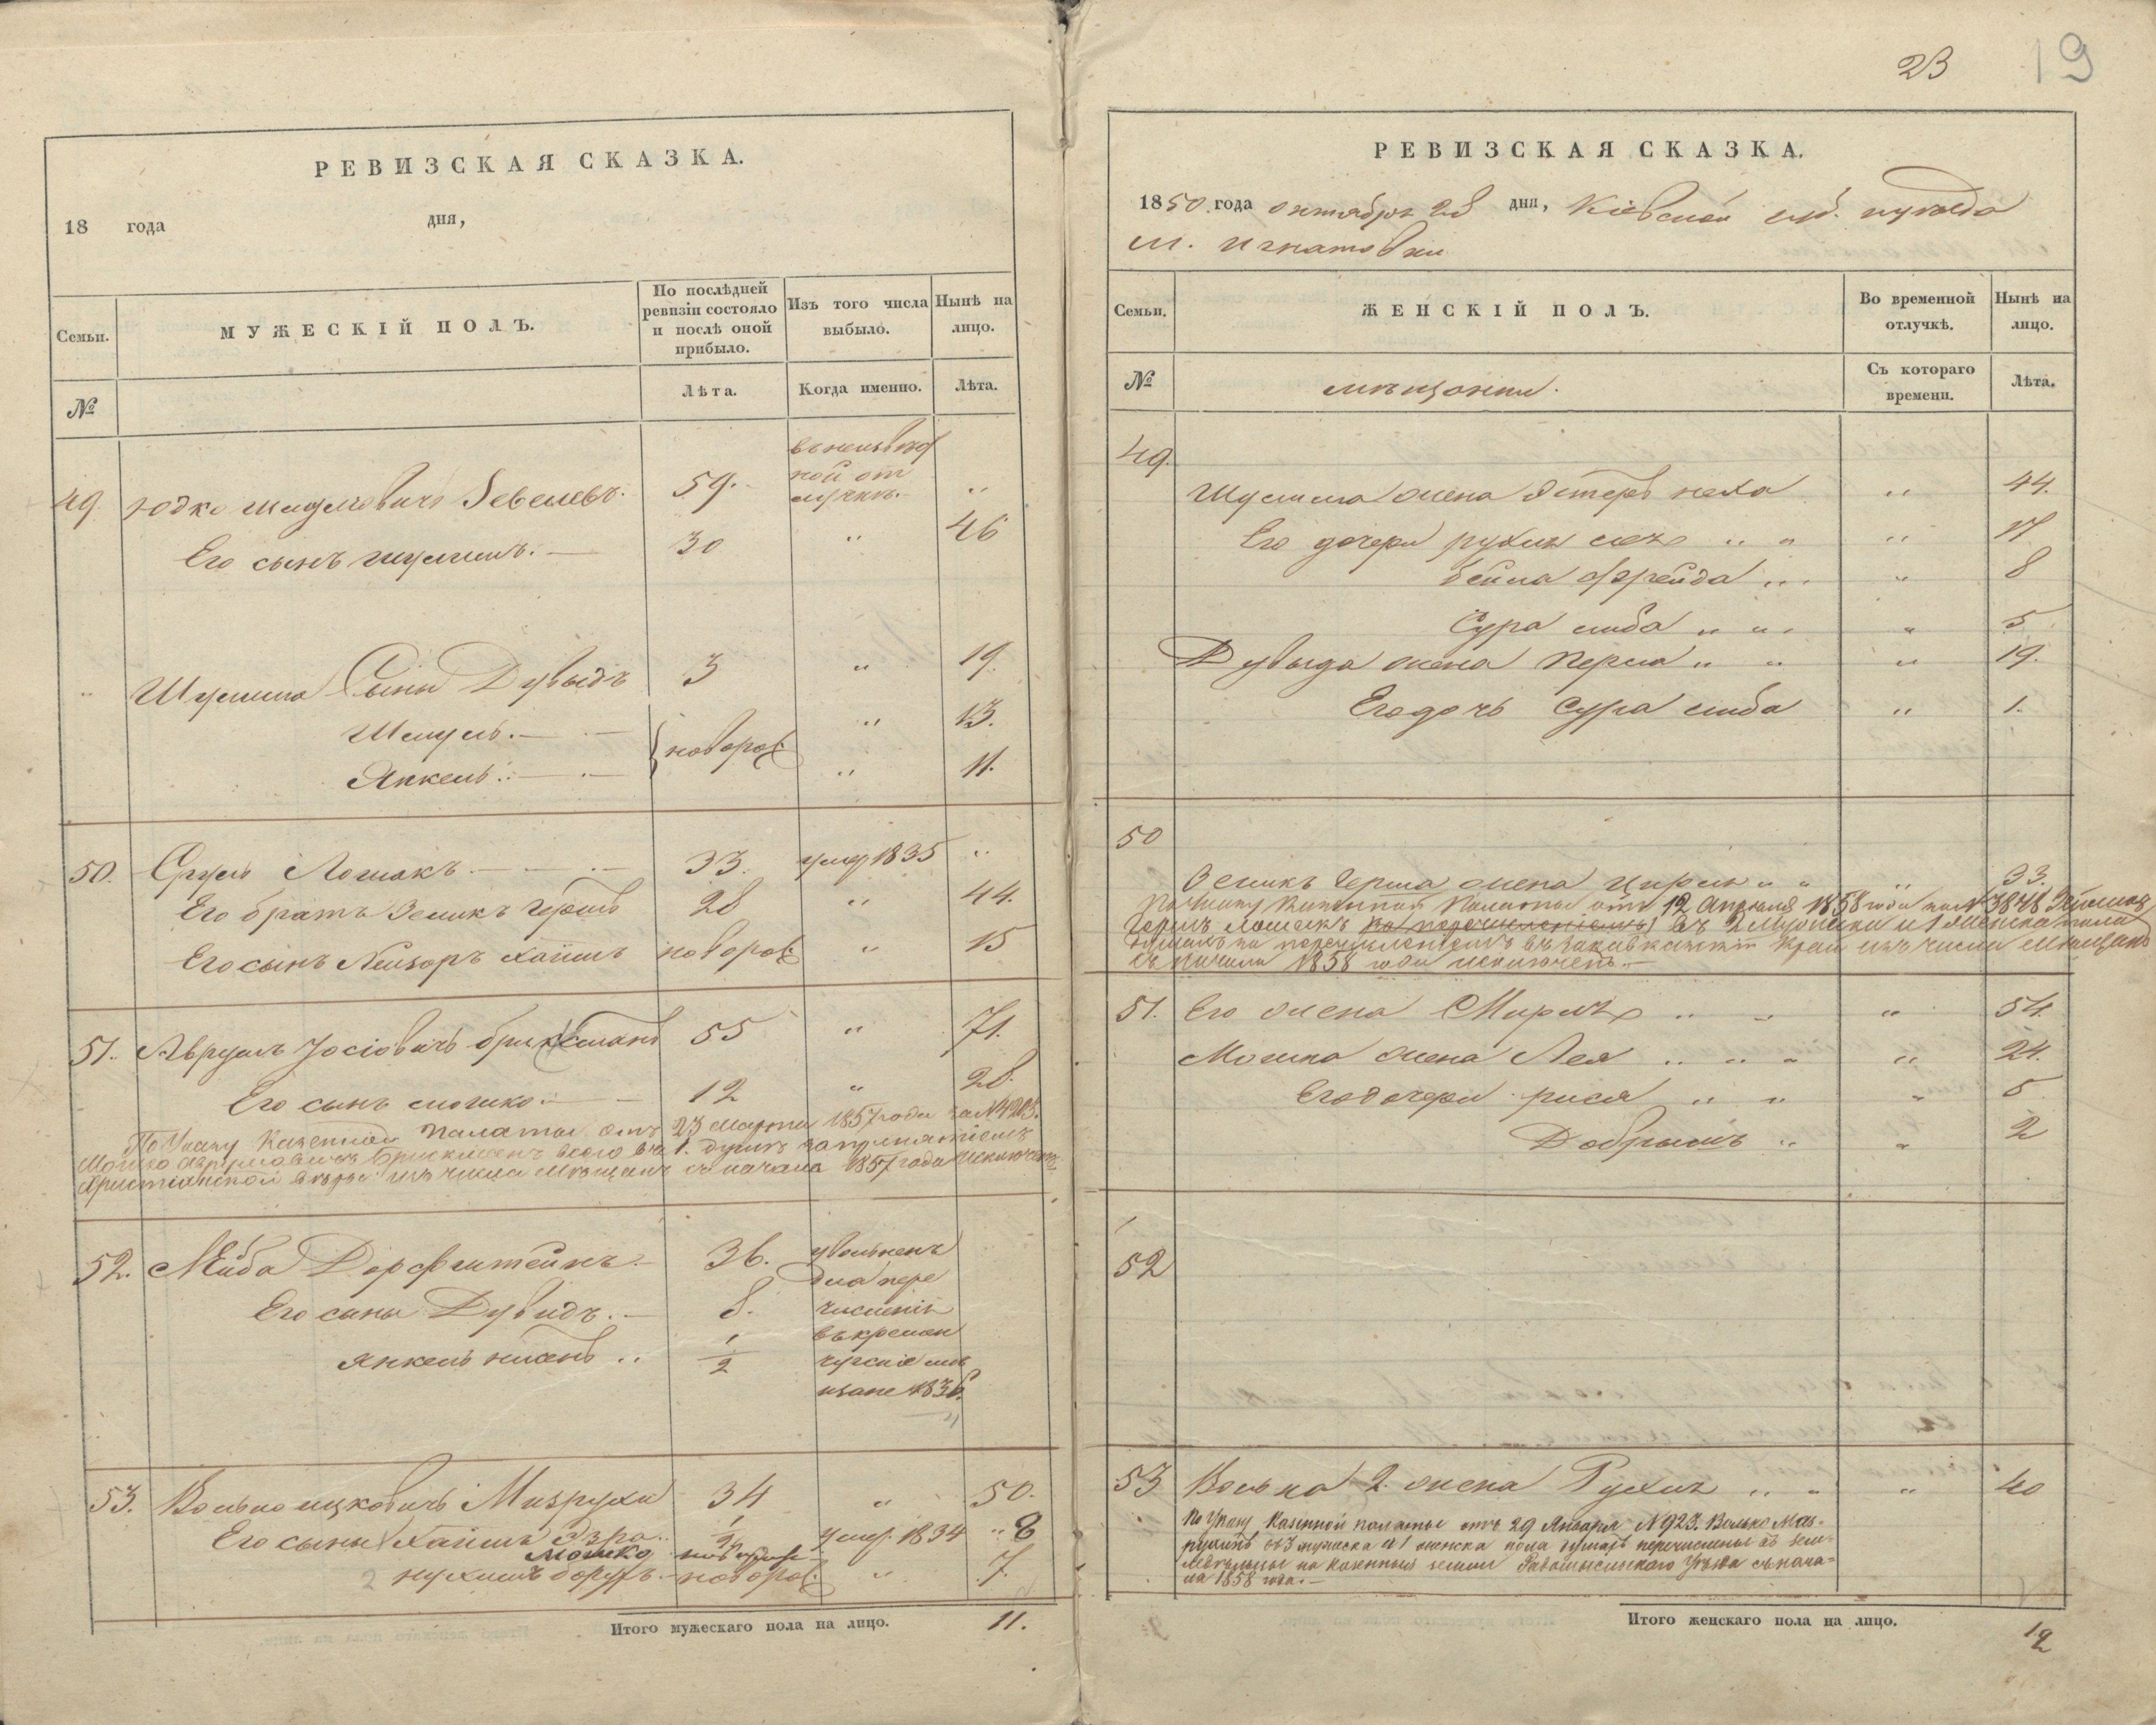 РЕВИЗСКАЯ СКАЗКА.
18 года дня,
Семьи.
МУЖЕСКІЙ ПОЛЪ.
По послѣдней ревизіи состояло и послѣ оной прибыло.
Изъ того числа выбыло.
Нынѣ на лицо.
№
Лѣта.
Когда именно.
Лѣта.
49. Юдко 59. отлучкѣ. "
Его сынъ Шулимъ. 30 " 46
" Шулима Сыны Дувыдъ 3 " 19.
Шмуль. новорож " 13.
Янкель. " 11.
50. Сруль Лошакъ 33. умер 1835 "
Его братъ Зеликъ Гершъ 28 " 44.
Его сынъ Лейзоръ Хаимъ новорож " 15
51. Аврумъ Іосіовичъ 55 " 71.
Его сынъ Мошко 12 " 28.
По Указу Казенной Палаты отъ 23 Марта 1857 года за № 4203.
Мошко Аврумовичъ Брикманъ всего въ 1. душѣ за принятіемъ
Христіанской вѣры изъ числа Мѣщанъ съ начала 1857 года исключенъ
52. Лейба Дорфштейнъ. 36. уволненъ
для пере
Его сыны Дувидъ. 8. численія
въ кремен
Янкель 1/2 чугскіе мѣ
щане 1836.
53. Волько Ицковичъ Мазрухи 34 " 50.
Его сыны Хаимъ Эзра 1/2 умер. 1834 "
Мошко 8
Нухимъ Борухъ. новорож " 7.
Итого мужескаго пола на лицо. 11.
23 19
РЕВИЗСКАЯ СКАЗКА.
1850 года октября 28 дня, Кіевской губ. и уѣзда
м. Игнатовки
Семьи.
ЖЕНСКІЙ ПОЛЪ.
Во временной отлучкѣ.
Нынѣ на лицо.
№
мѣщанки.
Съ котораго времени.
Лѣта.
49.
Шулима жена Эстеръ Неха " 44.
Его дочери Рухля " 17
Бейла Фрейда " 8
Сура Либа " 5
Дувыда жена Перла " 19.
Его дочь Сура Либа " 1.
50
Зеликъ Герша жена Цирля " 33.
По Указу Казенной Палаты отъ 12 Апреля 1858 года за № 3848 Зейликъ
Гершъ Лошакъ въ 2 Мужска и 1 Женска пола
душахъ за перечисленіемъ въ Закавказскій Край изъ числа Мѣщанъ
съ начала 1858 года исключенъ.
51. Его жена Мирля " 54.
Мошка жена Лея " 24.
Его дочери Рися " 5
Добрышъ " 2
52
53 Волька 2. жена Рухля " 40
По Указу Казенной палаты отъ 29 Января № 923. Волько Маз-
рухинъ въ 3 мужска и 1 женска пола душахъ перечислены въ зем-
ледѣльцы на казенныя земли Радомысльскаго Уѣзда съ нача-
ла 1858 года.
Итого женскаго пола на лицо. 12